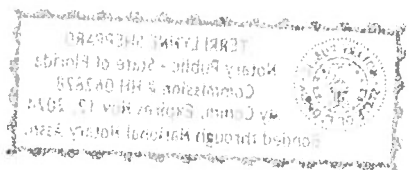 TERRI LYNNE SHEPPARD
Notary Public - State of Florida
Commission # HH 062678
My Comm. Expires Nov 17, 2024
Bonded through National Notary Assn.